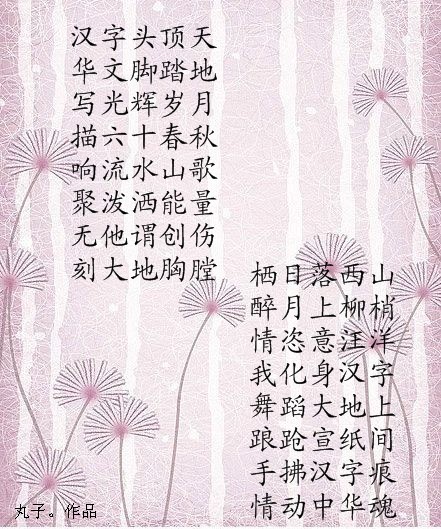 汉字头顶天
华文脚踏地
写光辉岁月
描六十春秋
响流水山歌
聚泼洒能量
无他谓创伤
刻大地胸膛
栖日落西山
醉月上柳梢
情恣意汪洋
我化身汉字
舞蹈大地上
踉跄宣纸间
手拂汉字痕
情动中华魂
丸子。作品